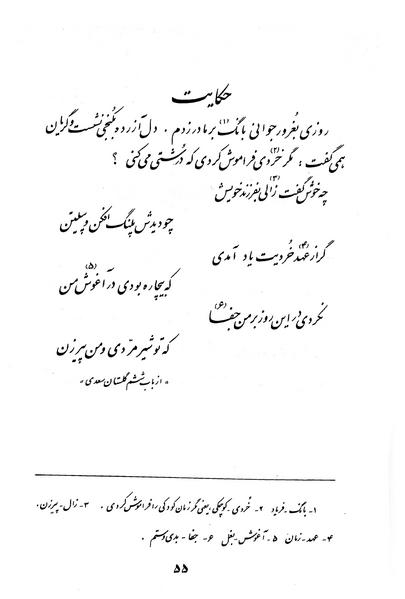 حکایت
روزی بغرور جوانی بانگ (۱) بر مادر زدم . دل آزرده بکنجی نشست و گریان
همی گفت : مگر خردی (۲) فراموش کردی که درشتی می کنی ؟
چه خوش گفت زالی (۳) بفرزند خویش
چو دیدش پلنگ افکن و پیلتن
گر از عهد (۴) خُردیت یاد آمدی
که بیچاره بودی در آغوش (۵) من
نکردی در این روز بر من جفا (۶)
که تو شیر مردی و من پیرزن
« از باب ششم گلستان سعدی »
۱- بانگ - فریاد ۲- خُردی - کوچکی ، یعنی مگر زمان کودکی را فراموش کردی . ۳- زال - پیرزن .
۴- عهد - زمان ۵- آغوش - بغل ۶- جفا - بدی و ستم .
۵۵